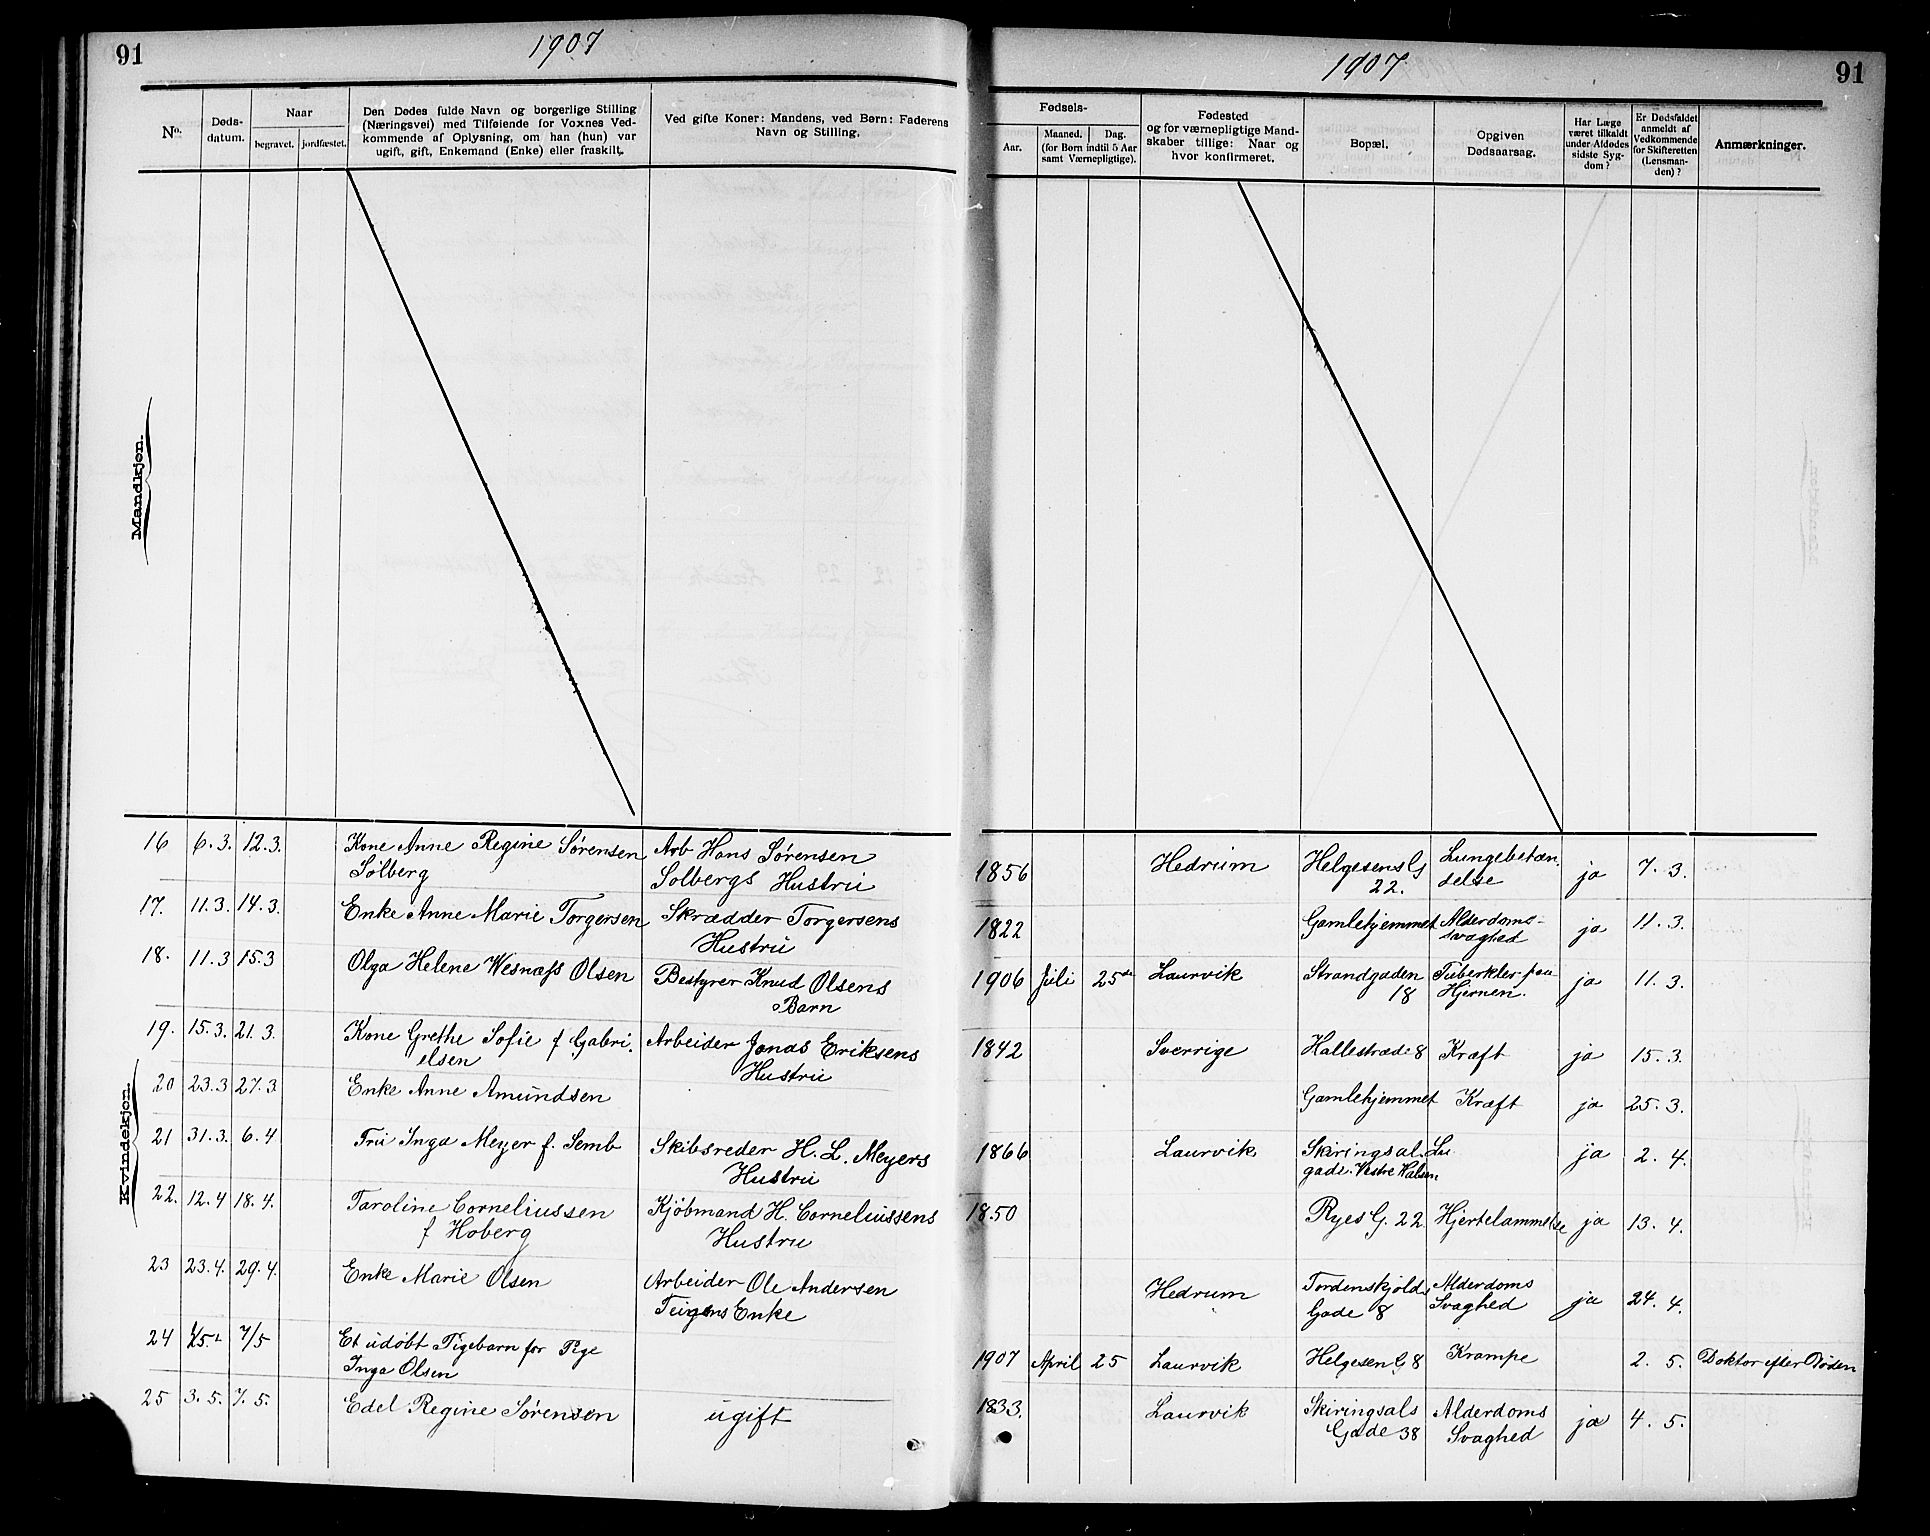 91
1907
1907
91
No.
Døds-
datum.
Naar
begravet.
jordfæstet.
Den Dødes fulde Navn og borgerlige Stilling
(Næringsvei) med Tilføiende for Voxnes Ved-
kommende af Oplysning, om han (hun) var
ugift, gift, Enkemand (Enke) eller fraskilt.
Ved gifte Koner: Mandens, ved Børn: Faderens
Navn og Stilling.
Fødsels-
Aar.
Maaned.
Dag.
(for Børn indtil 5 Aar
samt Værnepligtige).
Fødested
og for værnepligtige Mand-
skaber tillige: Naar og
hvor konfirmeret.
Bopæl.
Opgiven
Dødsaarsag.
Har Læge
været tilkaldt
under Afdødes
sidste Syg-
dom?
Er Dødsfaldet
anmeldt af
Vedkommende
for Skifteretten
(Lensman-
den)?
Anmærkninger.
Mandkjøn.
Kvindekjøn.
16 6.3. 12.3. Kone Anne Regine Sørensen Arb Hans Sørensen 1856 Hedrum Helgesens G Lungebetæn- ja 7.3.
Solberg Solbergs Hustru 22. delse
17. 11.3. 14.3. Enke Anne Marie Torgersen Skrædder Torgersens 1822 Gamlehjemmet Alderdoms- ja 11.3.
Hustru svaghed
18. 11.3 15.3 Olga Helene Olsen Bestyrer Knud Olsens 1906 Juli 25de Laurvik Strandgaden Tuberkler paa ja 11.3.
Barn 18 Hjernen.
19. 15.3. 21.3. Kone Grethe Sofie f Gabri- Arbeider Jonas Eriksens 1842 Sverrige Hallestræde 8 Kræft ja 15.3.
elsen Hustru
20 23.3 27.3 Enke Anne Amundsen Gamlehjemmet Kræft ja 25.3.
21 31.3. 6.4 Fru Inga Meyer f. Semb Skibsreder H. L. Meyers 1866 Laurvik Skiringsal Lu ja 2.4.
Hustru gade. Vestre Halsen
22. 12.4 18.4. Caroline Corneliussen Kjöbmand H. Corneliussens 1850 Ryes G. 22 Hjertelammelse ja 13.4.
f Hoberg Hustru
23 23.4. 29.4. Enke Marie Olsen Arbeider Ole Andersen Hedrum Tordenskjolds Alderdoms ja 24.4.
Teigens Enke Gade 8 Svaghed
24 7/5 Et udøbt Pigebarn for Pge 1907 April 25 Laurvik Helgesen G 8 Krampe 2.5. Doktor efter Døden
Inga Olsen
25 3.5. 7.5. Edel Regine Sørensen ugift 1833. Laurvik Skiringsals Alderdoms ja 4.5.
Gade 38 Svaghed